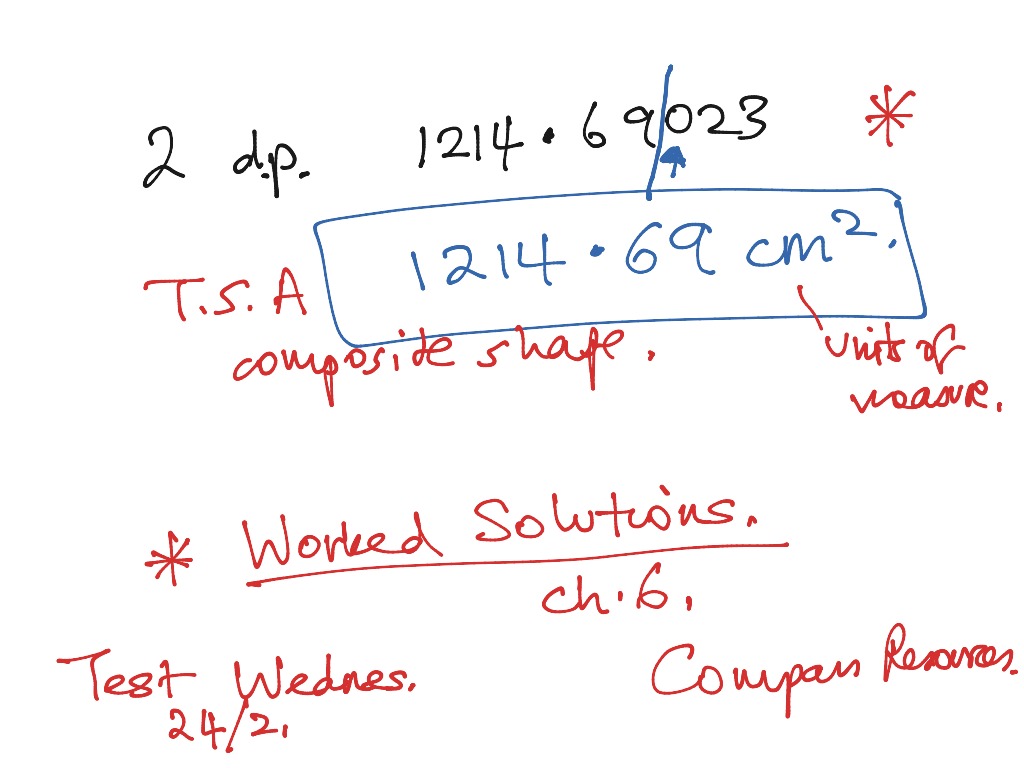 2 d.p. 1214.69023 *
1214.69 cm².
T.S.A
composite shape.
units of
measure.
* Worked Solutions.
ch.6.
Test Wednes.
24/2.
Compass Resources.